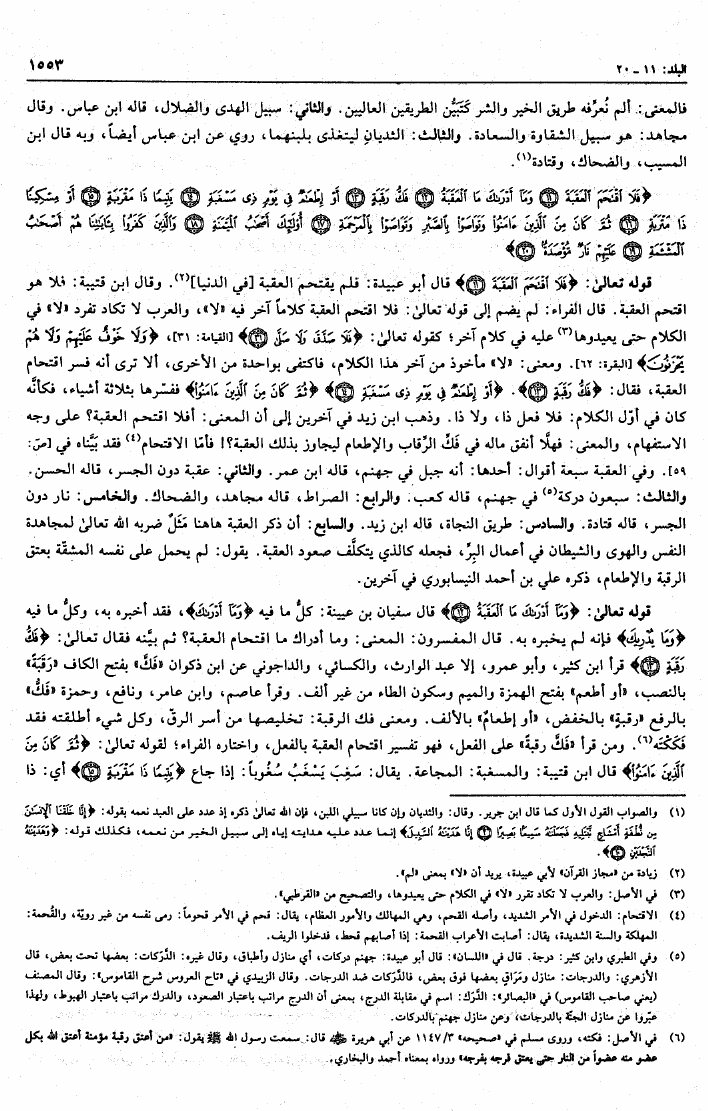 البلد: ١١ ـ ٢٠
١٥٥٣
فالمعنى: ألم نُعرِّفه طريق الخير والشر كتَبَيُّن الطريقين العاليين. والثاني: سبيل الهدى والضلال، قاله ابن عباس. وقال
مجاهد: هو سبيل الشقاوة والسعادة. والثالث: الثديان ليتغذى بلبنهما، روي عن ابن عباس أيضاً، وبه قال ابن
المسيب، والضحاك، وقتادة(١).
﴿فَلَا ٱقۡتَحَمَ ٱلۡعَقَبَةَ ۝١١ وَمَآ أَدۡرَىٰكَ مَا ٱلۡعَقَبَةُ ۝١٢ فَكُّ رَقَبَةٍ ۝١٣ أَوۡ إِطۡعَٰمٞ فِي يَوۡمٖ ذِي مَسۡغَبَةٖ ۝١٤ يَتِيمٗا ذَا مَقۡرَبَةٍ ۝١٥ أَوۡ مِسۡكِينٗا
ذَا مَتۡرَبَةٖ ۝١٦ ثُمَّ كَانَ مِنَ ٱلَّذِينَ ءَامَنُواْ وَتَوَاصَوۡاْ بِٱلصَّبۡرِ وَتَوَاصَوۡاْ بِٱلۡمَرۡحَمَةِ ۝١٧ أُوْلَٰٓئِكَ أَصۡحَٰبُ ٱلۡمَيۡمَنَةِ ۝١٨ وَٱلَّذِينَ كَفَرُواْ بِـَٔايَٰتِنَا هُمۡ أَصۡحَٰبُ
ٱلۡمَشۡـَٔمَةِ ۝١٩ عَلَيۡهِمۡ نَارٞ مُّؤۡصَدَةُۢ ۝٢٠﴾
قوله تعالى: ﴿فَلَا ٱقۡتَحَمَ ٱلۡعَقَبَةَ ۝١١﴾ قال أبو عبيدة: فلم يقتحم العقبة [في الدنيا](٢). وقال ابن قتيبة: فلا هو
اقتحم العقبة. قال الفراء: لم يضم إلى قوله تعالى: فلا اقتحم العقبة كلاماً آخر فيه «لا»، والعرب لا تكاد تفرد «لا» في
الكلام حتى يعيدوها(٣) عليه في كلام آخر؛ كقوله تعالى: ﴿فَلَا صَدَّقَ وَلَا صَلَّىٰ ۝٣١﴾ [القيامة: ٣١]، ﴿وَلَا خَوۡفٌ عَلَيۡهِمۡ وَلَا هُمۡ
يَحۡزَنُونَ﴾ [البقرة: ٦٢]. ومعنى: «لا» مأخوذ من آخر هذا الكلام، فاكتفى بواحدة من الأخرى، ألا ترى أنه فسر اقتحام
العقبة، فقال: ﴿فَكُّ رَقَبَةٍ ۝١٣﴾. ﴿أَوۡ إِطۡعَٰمٞ فِي يَوۡمٖ ذِي مَسۡغَبَةٖ ۝١٤﴾ ﴿ثُمَّ كَانَ مِنَ ٱلَّذِينَ ءَامَنُواْ﴾ ففسّرها بثلاثة أشياء، فكأنَّه
كان في أوّل الكلام: فلا فعل ذا، ولا ذا. وذهب ابن زيد في آخرين إلى أن المعنى: أفلا اقتحم العقبة؟ على وجه
الاستفهام، والمعنى: فهلّا أنفق ماله في فَكِّ الرِّقاب والإطعام ليجاوز بذلك العقبة؟! فأمّا الاقتحام(٤) فقد بيَّناه في [صَ:
٥٩]. وفي العقبة سبعة أقوال: أحدها: أنه جبل في جهنم، قاله ابن عمر. والثاني: عقبة دون الجسر، قاله الحسن.
والثالث: سبعون دركة(٥) في جهنم، قاله كعب. والرابع: الصراط، قاله مجاهد، والضحاك. والخامس: نار دون
الجسر، قاله قتادة. والسادس: طريق النجاة، قاله ابن زيد. والسابع: أن ذكر العقبة هاهنا مَثَلٌ ضربه الله تعالى لمجاهدة
النفس والهوى والشيطان في أعمال البِرِّ، فجعله كالذي يتكلَّف صعود العقبة. يقول: لم يحمل على نفسه المشقّة بعتق
الرقبة والإطعام، ذكره علي بن أحمد النيسابوري في آخرين.
قوله تعالى: ﴿وَمَآ أَدۡرَىٰكَ مَا ٱلۡعَقَبَةُ ۝١٢﴾ قال سفيان بن عيينة: كلُّ ما فيه ﴿وَمَآ أَدۡرَىٰكَ﴾، فقد أخبره به، وكلُّ ما فيه
﴿وَمَا يُدۡرِيكَ﴾ فإنه لم يخبره به. قال المفسرون: المعنى: وما أدراك ما اقتحام العقبة؟ ثم بيَّنه فقال تعالى: ﴿فَكُّ
رَقَبَةٍ ۝١٣﴾ قرأ ابن كثير، وأبو عمرو، إلا عبد الوارث، والكسائي، والداجوني عن ابن ذكوان «فَكَّ» بفتح الكاف «رَقَبَةً»
بالنصب، «أو أطعم» بفتح الهمزة والميم وسكون الطاء من غير ألف. وقرأ عاصم، وابن عامر، ونافع، وحمزة «فَكُّ»
بالرفع «رقبةٍ» بالخفض، «أو إطعامٌ» بالألف. ومعنى فك الرقبة: تخليصها من أسر الرق، وكل شيء أطلقته فقد
فَكَكْته(٦). ومن قرأ «فَكَّ رقبةً» على الفعل، فهو تفسير اقتحام العقبة بالفعل، واختاره الفراء؛ لقوله تعالى: ﴿ثُمَّ كَانَ مِنَ
ٱلَّذِينَ ءَامَنُواْ﴾ قال ابن قتيبة: والمسغبة: المجاعة. يقال: سَغِبَ يَسْغَبُ سُغُوباً: إذا جاع ﴿يَتِيمٗا ذَا مَقۡرَبَةٍ ۝١٥﴾ أي: ذا
(١) والصواب القول الأول كما قال ابن جرير. وقال: والثديان وإن كانا سبيلي اللبن، فإن الله تعالى ذكره إذ عدد على العبد نعمه بقوله: ﴿إِنَّا خَلَقۡنَا ٱلۡإِنسَٰنَ
مِن نُّطۡفَةٍ أَمۡشَاجٖ نَّبۡتَلِيهِ فَجَعَلۡنَٰهُ سَمِيعَۢا بَصِيرًا ۝٢ إِنَّا هَدَيۡنَٰهُ ٱلسَّبِيلَ﴾ إنما عدد عليه هدايته إياه إلى سبيل الخير من نعمه، فكذلك قوله: ﴿وَهَدَيۡنَٰهُ
ٱلنَّجۡدَيۡنِ ۝١٠﴾.
(٢) زيادة من «مجاز القرآن» لأبي عبيدة، يريد أن «لا» بمعنى «لم».
(٣) في الأصل: والعرب لا تكاد تقرر «لا» في الكلام حتى يعيدوها، والتصحيح من «القرطبي».
(٤) الاقتحام: الدخول في الأمر الشديد، وأصله القحم، وهي المهالك والأمور العظام، يقال: قحم في الأمر قحوماً: رمى نفسه من غير رويّة، والقُحمة:
المهلكة والسنة الشديدة، يقال: أصابت الأعراب القحمة: إذا أصابهم قحط، فدخلوا الريف.
(٥) وفي الطبري وابن كثير: درجة. قال في «اللسان»: قال أبو عبيدة: جهنم دركات، أي منازل وأطباق، وقال غيره: الدَّركات: بعضها تحت بعض، قال
الأزهري: والدرجات: منازل ومَرَاقٍ بعضها فوق بعض، فالدَّركات ضد الدرجات. وقال الزبيدي في «تاج العروس شرح القاموس»: وقال المصنف
(يعني صاحب القاموس) في «البصائر»: الدَّرَك: اسم في مقابلة الدرج، بمعنى أن الدرج مراتب باعتبار الصعود، والدرك مراتب باعتبار الهبوط، ولهذا
عبّروا عن منازل الجنّة بالدرجات، وعن منازل جهنم بالدركات.
(٦) في الأصل: فكته، وروى مسلم في «صحيحه» ١١٤٧/٣ عن أبي هريرة ﷺ قال: سمعت رسول الله ﷺ يقول: «من أعتق رقبة مؤمنة أعتق الله بكل
عضو منه عضواً من النار حتى يعتق فرجه بفرجه» ورواه بمعناه أحمد والبخاري.